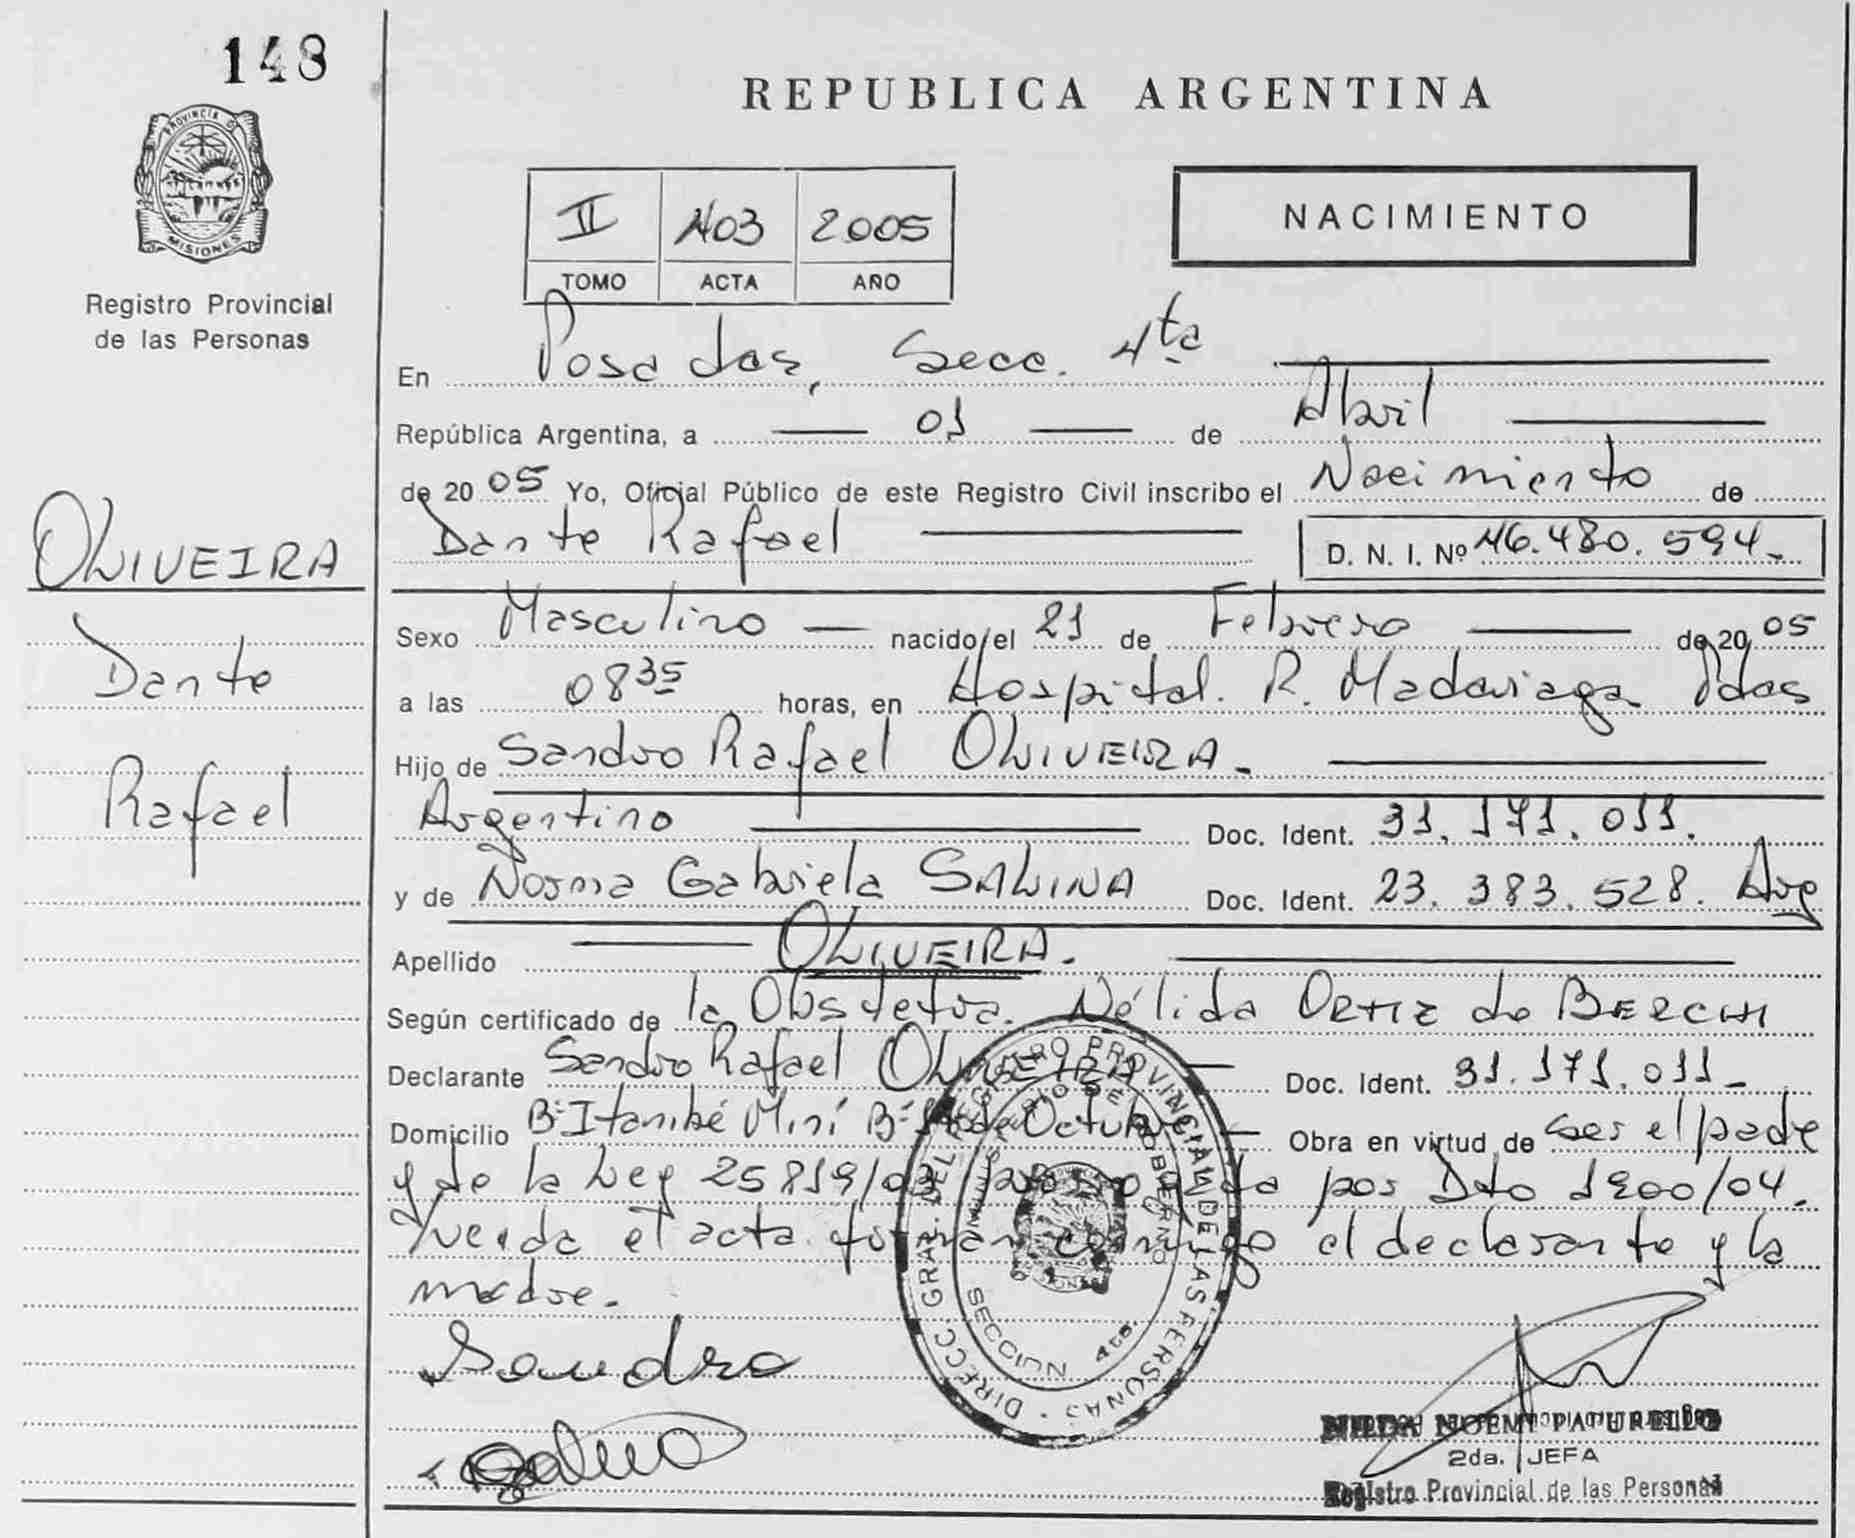 148
PROVINCIA D
MISIONES
Registro Provincial
de las Personas
REPUBLICA ARGENTINA
II 403 2005
TOMO ACTA AÑO
NACIMIENTO
En Posadas, Secc. 4ta
República Argentina, a 01 de Abril
de 20 05 Yo, Oficial Público de este Registro Civil inscribo el Nacimiento de
Dante Rafael D. N. I. Nº 46.480.594.-
OLIVEIRA
Dante
Rafael
Sexo Masculino nacido el 21 de Febrero de 20 05
a las 08 35 horas, en Hospital. R. Madariaga Pdas
Hijo de Sandro Rafael OLIVEIRA.-
Argentino Doc. Ident. 31.171.011.
y de Norma Gabriela SALINA Doc. Ident. 23.383.528. Arg
Apellido OLIVEIRA.-
Según certificado de la Obstetra. Nélida ORTIZ de BERCHI
Declarante Sandro Rafael OLIVEIRA Doc. Ident. 31.171.011.-
Domicilio Bº Itambé Miní Bº de Octubre Obra en virtud de ser el padre
y de la Ley 25819/03 por Dto 1900/04.
Leída el acta firman conmigo el declarante y la
madre.-
Sandro
DIRECC. GRAL. DEL REGISTRO PROVINCIAL DE LAS PERSONAS
MINISTERIO DE GOBIERNO
SECCION 4ta.
NOEMI
2da. JEFA
Registro Provincial de las Personas